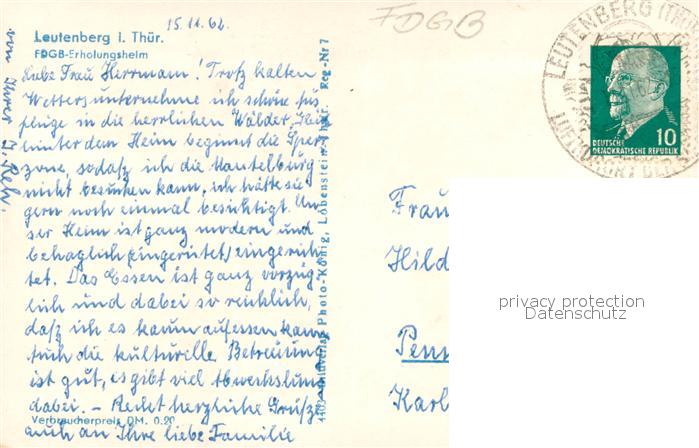 15.11.62.
FDGB
Leutenberg i. Thür.
FDGB-Erholungsheim
Liebe Frau Herrmann! Trotz kalten
Wetters unternehme ich schöne Aus
flüge in die herrlichen Wälder,
hinter dem Heim beginnt die Sperr
zone, sodaß ich die Mantelburg
nicht besuchen kann, ich hätte sie
gern noch einmal besichtigt. Un
ser Heim ist ganz modern und
behaglich eingerich
tet. Das Essen ist ganz vorzüg
lich und dabei so reichlich,
daß ich es kaum aufessen kann
Auch die kulturelle Betreuung
ist gut, es gibt viel Abwechslung
dabei. – Recht herzliche Grüße
Verbraucherpreis DM. 0.20
auch an Ihre liebe Familie
von Ihrer
Photo-König, Lobenstein/Thür. Reg-Nr 7
LEUTENBERG (THÜR
10
DEUTSCHE
DEMOKRATISCHE REPUBLIK
Frau
Hild
Penn
Karl
privacy protection
Datenschutz